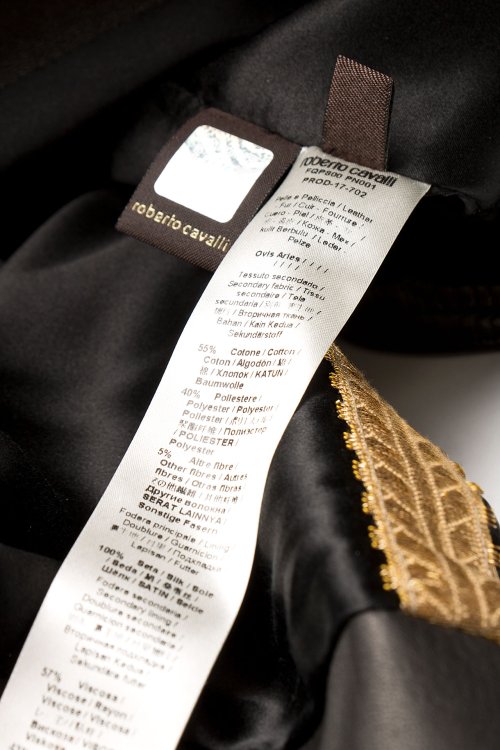 roberto cavalli
roberto cavalli
FQPS00 PN001
PROD-17-702
Pelle e Pelliccia / Leather
- Fur / Cuir - Fourrure /
Cuero - Piel /
/ Кожа - Мех /
kulit Berbulu / Leder -
Pelze
Ovis Aries / / / /
/ / / /
Tessuto secondario /
Secondary fabric / Tissu
secondaire / Tela
secundaria /
/ Вторичная ткань /
Bahan / Kain Kedua /
Sekundärstoff
55% Cotone / Cotton /
Coton / Algodón / 棉 /
棉 / Хлопок / KATUN /
Baumwolle
40% Poliestere /
Polyester / Polyester /
Poliéster /
聚酯纤维 / Полиэстер
/ POLIESTER /
Polyester
5% Altre fibre /
Other fibres / Autres
fibres / Otras fibras
/ その他繊維 / 其他纤维 /
Другие волокна /
SERAT LAINNYA /
Sonstige Fasern
Fodera principale / Lining
/ Doublure / Guarnición
/ Подкладка /
Lapisan / Futter
100% Seta / Silk / Soie
/ Seda / 絹 /
Шёлк / SATIN / Seide
Fodera secondaria /
Secondary lining /
Doublure secondaire /
Guarnición secundaria
Вторичная подкладка /
Lapisan Kedua /
Sekundäre futter
57% Viscosa /
Viscose / Rayon /
Viscose / Viscosa /